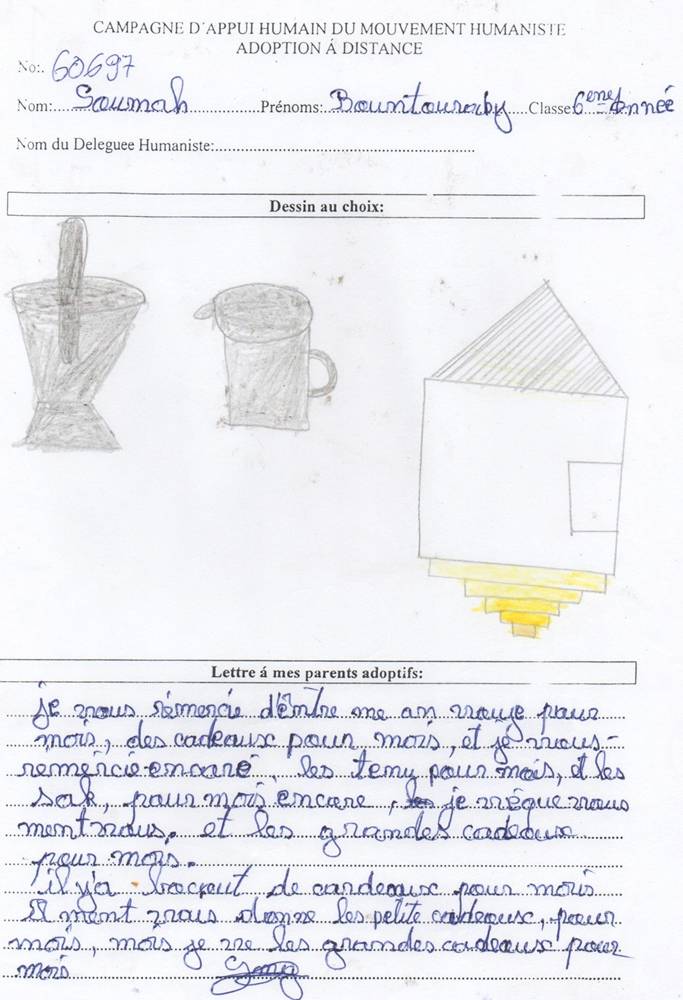 CAMPAGNE D'APPUI HUMAIN DU MOUVEMENT HUMANISTE
ADOPTION Á DISTANCE
No:. 60697
Nom: Soumah Prénoms: Classe: 6 Année
Nom du Deleguee Humaniste:
Dessin au choix:
Lettre á mes parents adoptifs:
je vous rémercie d'Entre me an pour
mois, des cadeaux pour mois, et je vous-
remercie encaré, les pour mois, et les
Sak, pour mois encare, je vous
mentvous. et les grandes cadeaux
pour mois.
il y'a de cardeaux pour mois
ment vous donne les petite cadeaux, pour
mois, mois je ve les grandes cadeaux pour
mois